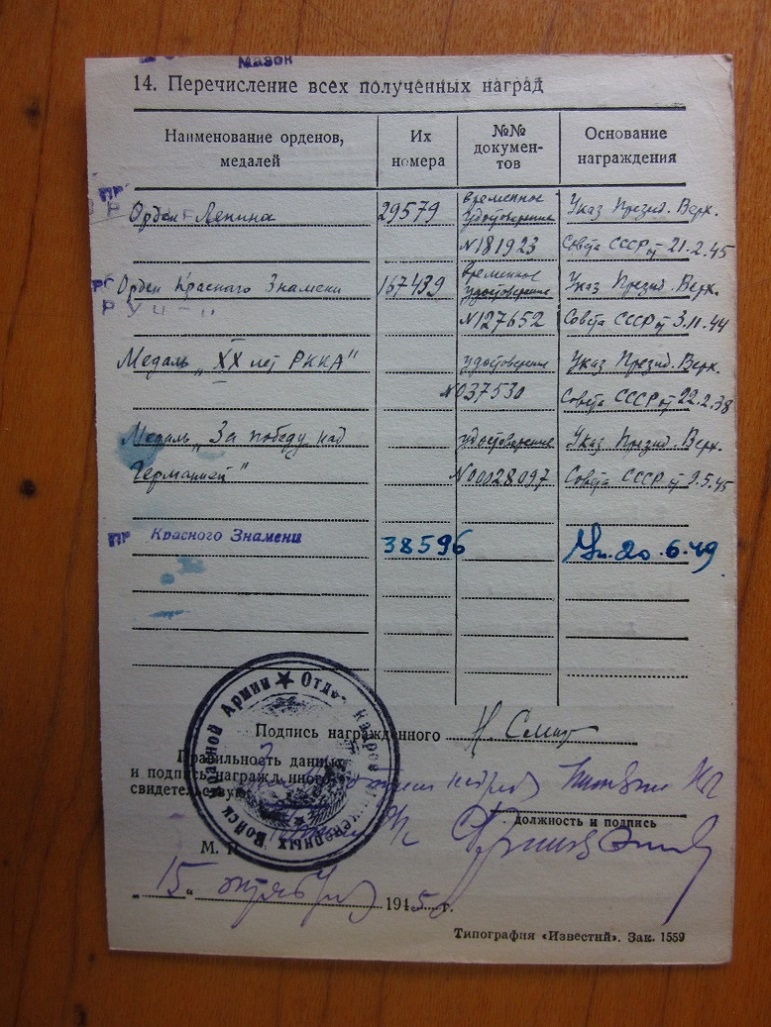 Мазок
14. Перечисление всех полученных наград
Наименование орденов, медалей
Их номера
№№ документов
Основание награждения
Орден Ленина 29579 временное удостоверение Указ Презид. Верх.
№181923 Совета СССР от 21.2.45
Орден Красного Знамени 167439 временное удостоверение Указ Презид. Верх.
№127652 Совета СССР от 3.11.44
Медаль „XX лет РККА" удостоверение Указ Презид. Верх.
№037530 Совета СССР от 22.2.38
Медаль „За победу над удостоверение Указ Презид. Верх.
Германией" №00028097 Совета СССР от 9.5.45
ПР Красного Знамени 38596 Ук. 20.6.49
Подпись награжденного
Правильность данных
и подпись награжденного
свидетельствую
должность и подпись
М. П.
„15" октября 1945 г.
Отдел Кадров Инженерных Войск Красной Армии
Типография «Известий». Зак. 1559